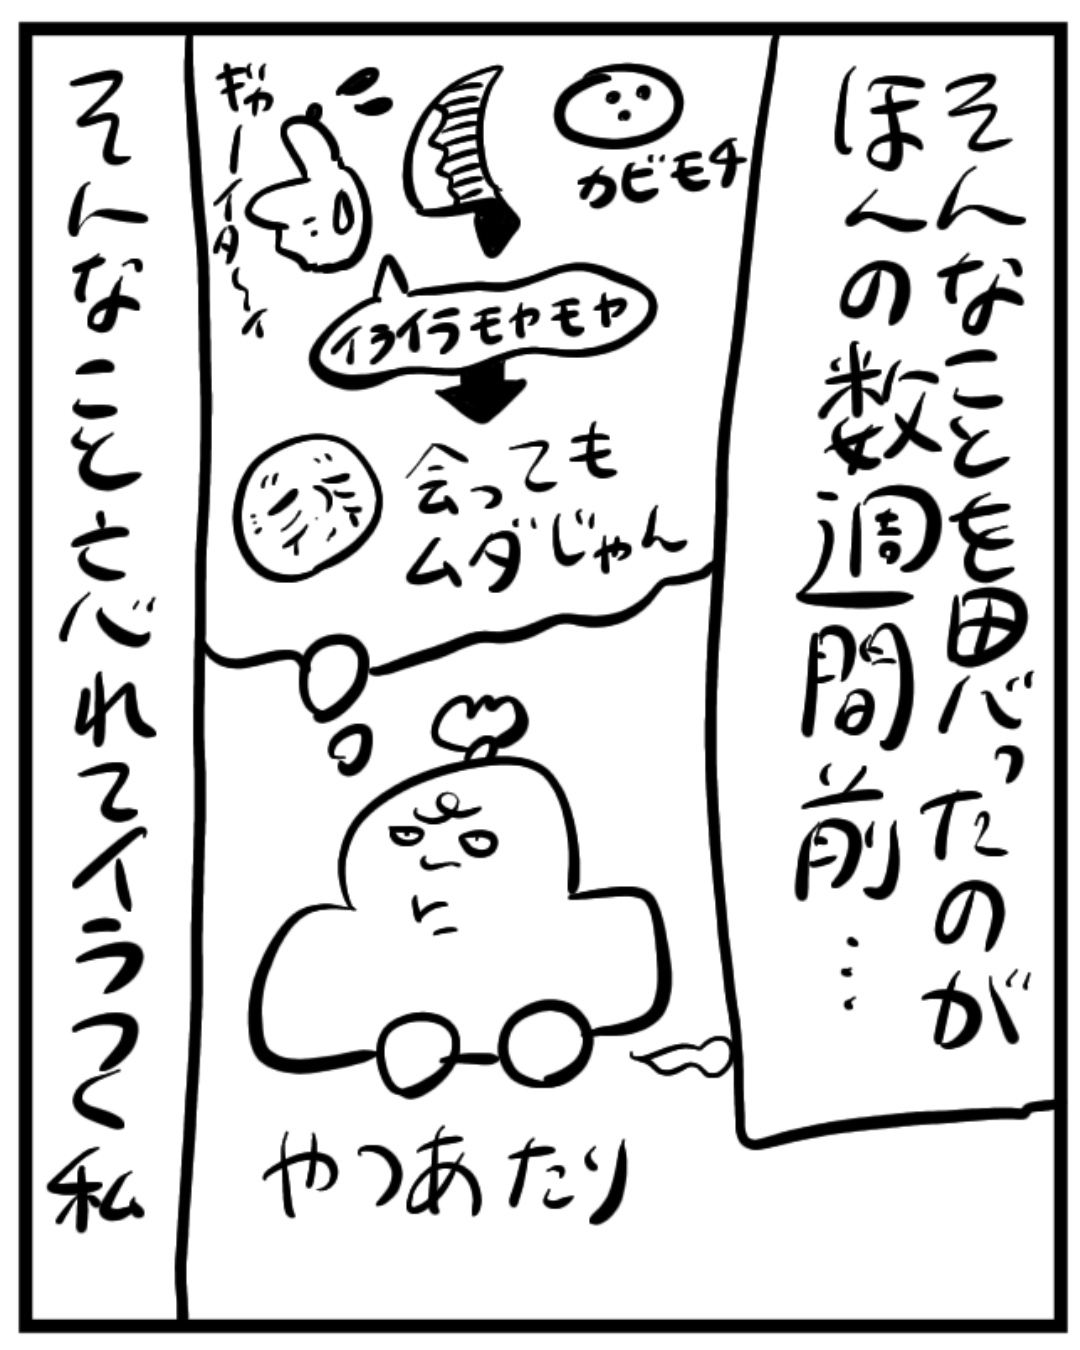 そんなことを思ったのが
ほんの数週間前…
カビモチ
ギャーイタ〜ィ
イライラモヤモヤ
会っても
ムダじゃん
やつあたり
そんなこと忘れてイラつく私